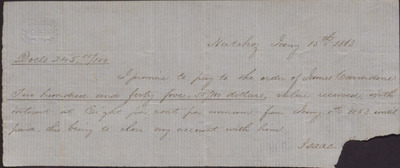 Natchez Jany 15th 1863
Dolls 245,
I promise to pay to the order of James Carradine
Two hundred and forty five, dollars, value received with
interest at Eight per cent per annum from Jany 1863 until
paid. this being to close my account with him
Isaac